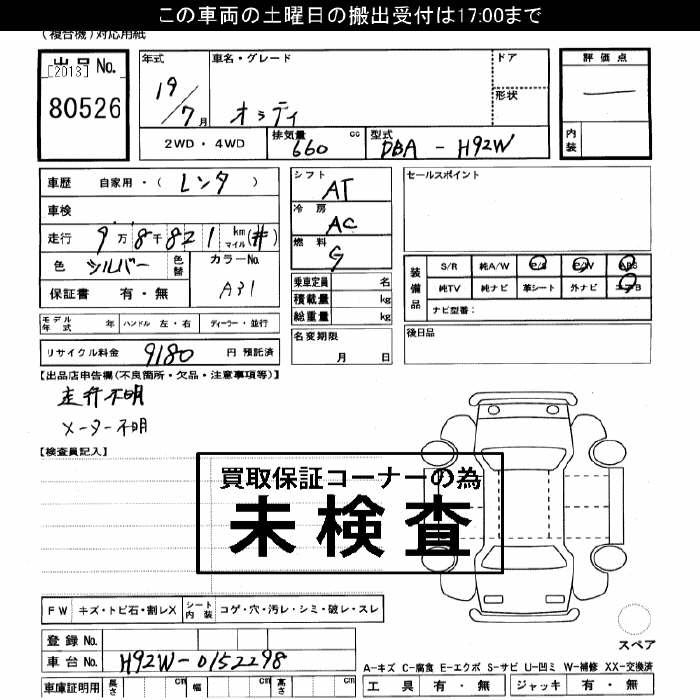 この車両の土曜日の搬出受付は17:00まで
(複合機)対応用紙
出品No.
[2013]
80526
年式
19/7月
車名・グレード
オッティ
ドア
形状
評価点
―
内装
2WD・4WD
排気量 660 cc
型式 DBA-H92W
車歴 自家用・(レンタ)
車検
走行 9万8千821km マイル(#)
色 シルバー 色替
カラーNo. A31
保証書 有・無
シフト AT
冷房 AC
燃料 G
乗車定員 名
積載量 kg
総重量 kg
セールスポイント
装備品
S/R 純A/W P/S P/W ABS
純TV 純ナビ 革シート 外ナビ エアB
ナビ型番:
モデル年式 年 ハンドル 左・右 ディーラー・並行
リサイクル料金 9180 円 預託済
名変期限
月 日
後日品
【出品店申告欄(不良箇所・欠品・注意事項等)】
走行不明
メーター不明
【検査員記入】
買取保証コーナーの為
未検査
FW キズ・トビ石・割レX シート内装 コゲ・穴・汚レ・シミ・破レ・スレ
登録No.
車台No. H92W-0152298
車庫証明用 長さ cm 幅 cm 高さ cm
スペア
A-キズ C-腐食 E-エクボ S-サビ U-凹ミ W-補修 XX-交換済
工具 有・無 ジャッキ 有・無